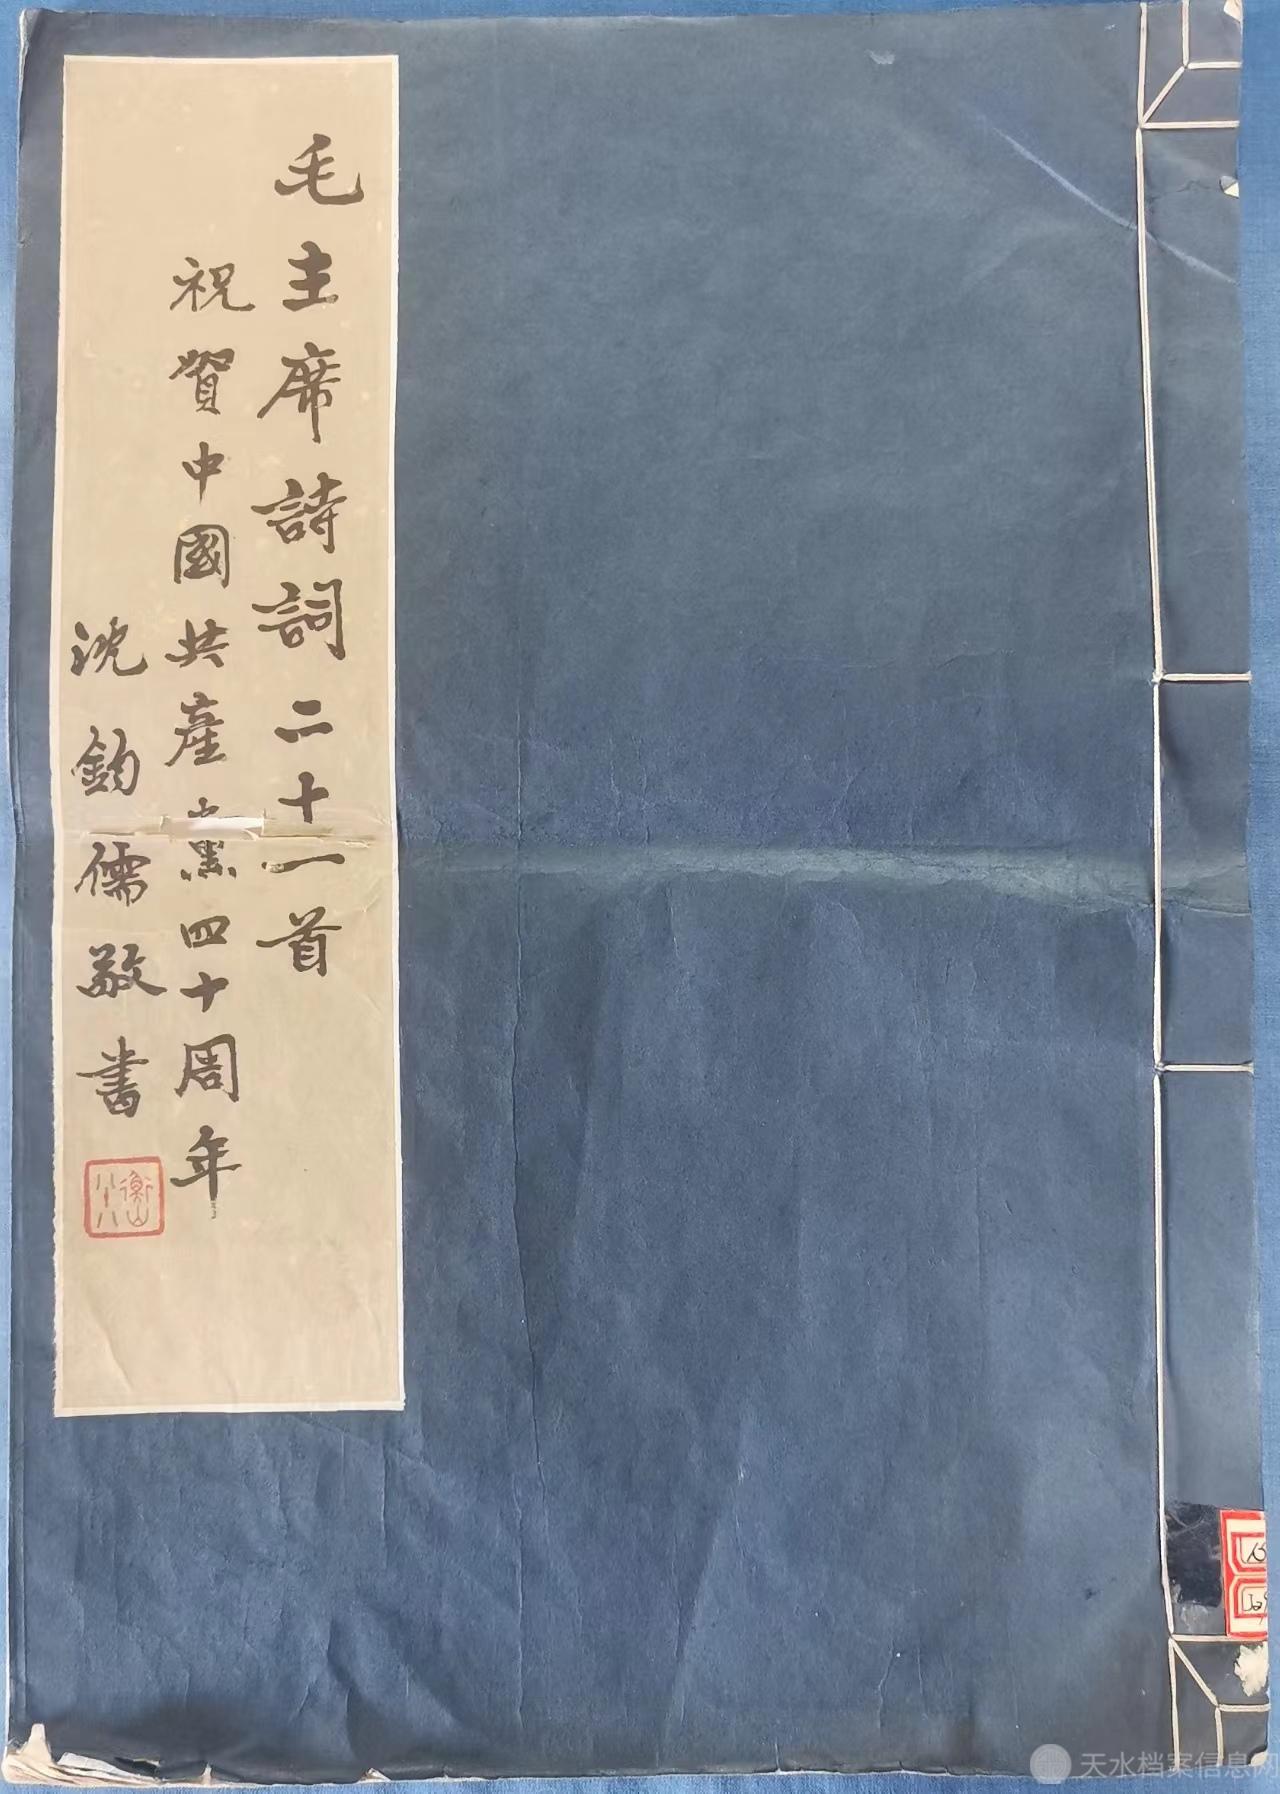 毛主席詩詞二十一首
祝賀中國共產黨四十周年
沈鈞儒敬書
衡山
八十八
天水档案信息网